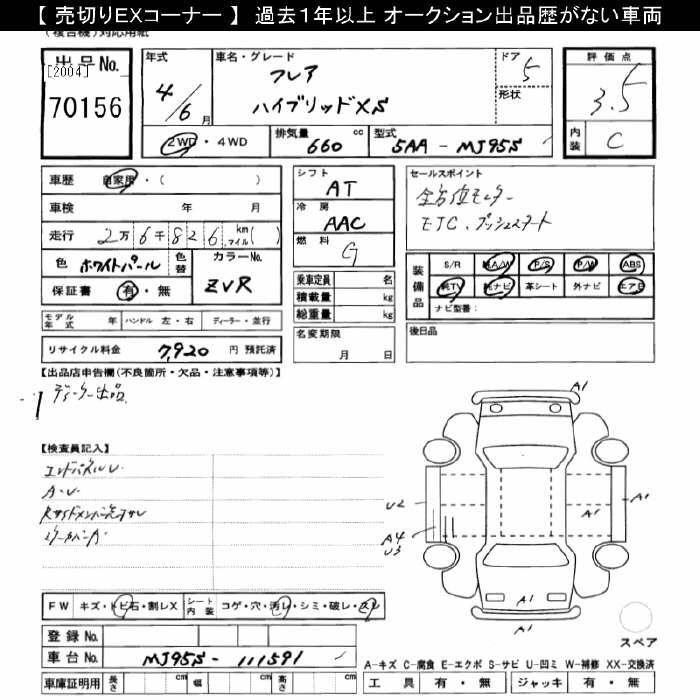 【 売切りEXコーナー 】 過去１年以上 オークション出品歴がない車両
(複合機)対応用紙
出品No. [2004] 70156
年式 4/6月
車名・グレード フレア ハイブリッドXS
ドア 5 形状
評価点 3.5
内装 C
2WD・4WD
排気量 660 cc
型式 5AA - MJ95S
車歴 自家用・( )
車検 年 月
走行 2万6千826 km マイル( )
色 ホワイトパール 色替 カラーNo. ZVR
保証書 有・無
シフト AT
冷房 AAC
燃料 G
乗車定員 名
積載量 kg
総重量 kg
名変期限 月 日
セールスポイント
全方位モニター
ETC、プッシュスタート
装備品 S/R 純A/W P/S P/W ABS
純TV 純ナビ 革シート 外ナビ エアB
ナビ型番：
後日品
モデル年式 年 ハンドル 左・右 ディーラー・並行
リサイクル料金 7,920 円 預託済
【出品店申告欄(不良箇所・欠品・注意事項等)】
ディーラー出品
【検査員記入】
エンドパネルU
A・U
A1
U2
A4
U3
A1
A1
A1
FW キズ・トビ石・割レX シート内装 コゲ・穴・汚レ・シミ・破レ・スレ
スペア
登録No.
車台No. MJ95S - 111591
A-キズ C-腐食 E-エクボ S-サビ U-凹ミ W-補修 XX-交換済
車庫証明用 長さ cm 幅 cm 高さ cm
工具 有・無 ジャッキ 有・無